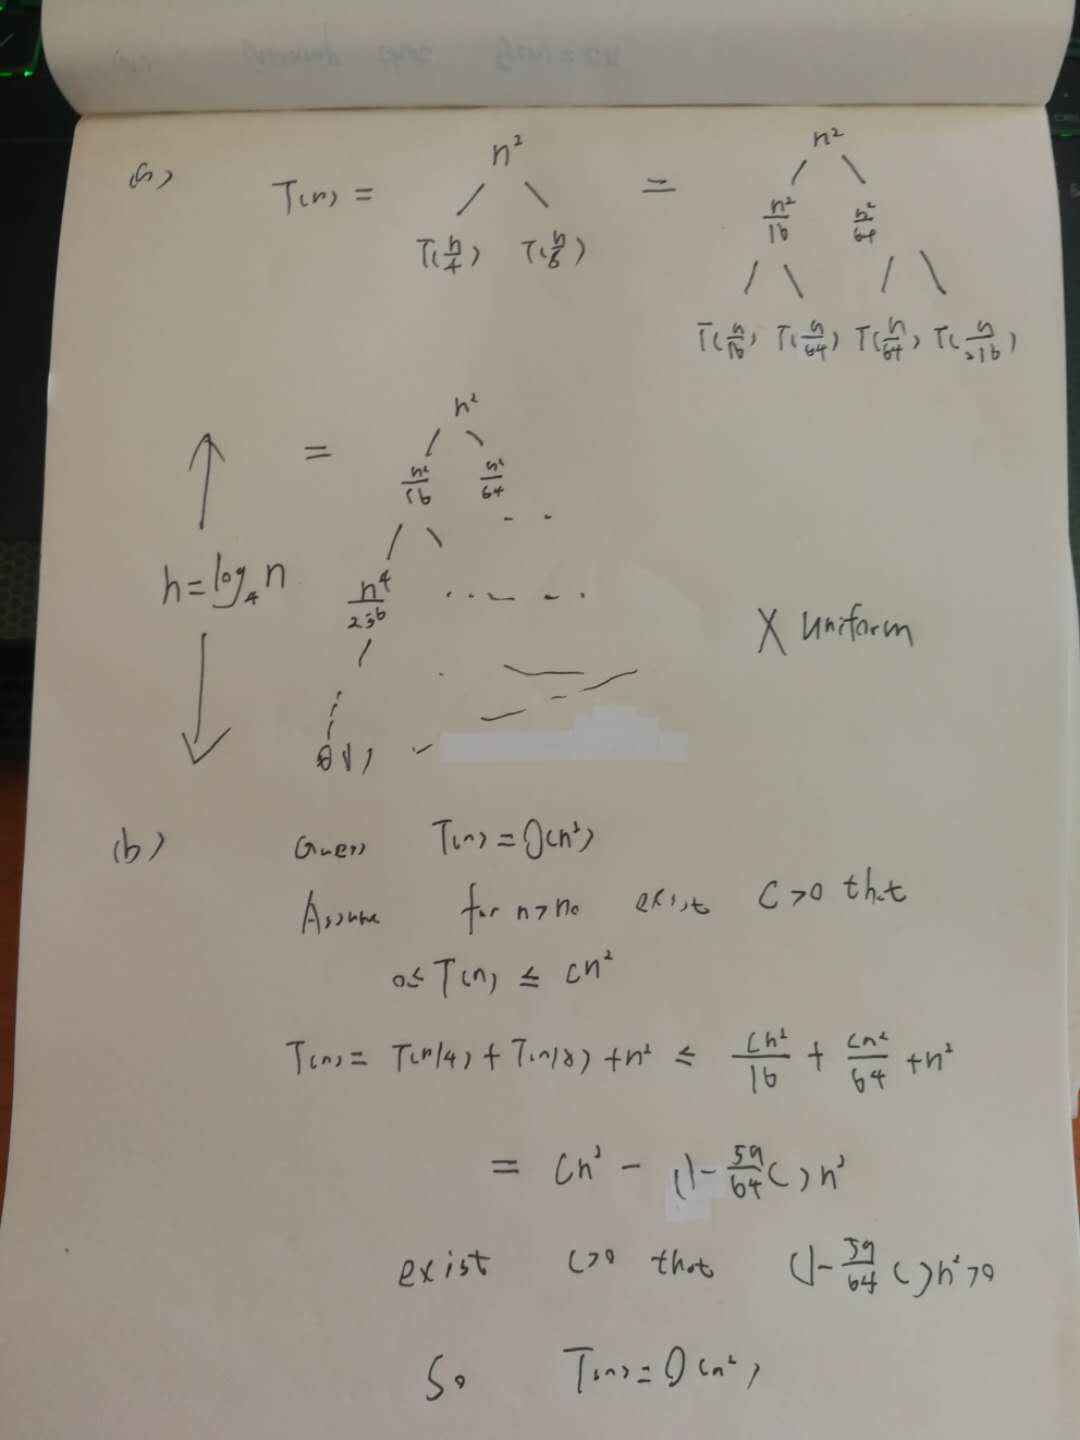 (a)
T(n) = n² =  n²
n²/16 n²/64
T(n/4) T(n/8)
T(n/16) T(n/64) T(n/64) T(n/216)
= n²
n²/16 n²/64
h = log₄n
n⁴/256
X uniform
θ(1)
(b) Guess T(n) = O(n²)
Assume for n>n₀ exist C>0 that
0≤ T(n) ≤ cn²
T(n) = T(n/4) + T(n/8) + n² ≤ cn²/16 + cn²/64 + n²
= cn² - (1 - 59/64 C) n²
exist C>0 that (1 - 59/64 C) n² >0
So T(n) = O(n²)